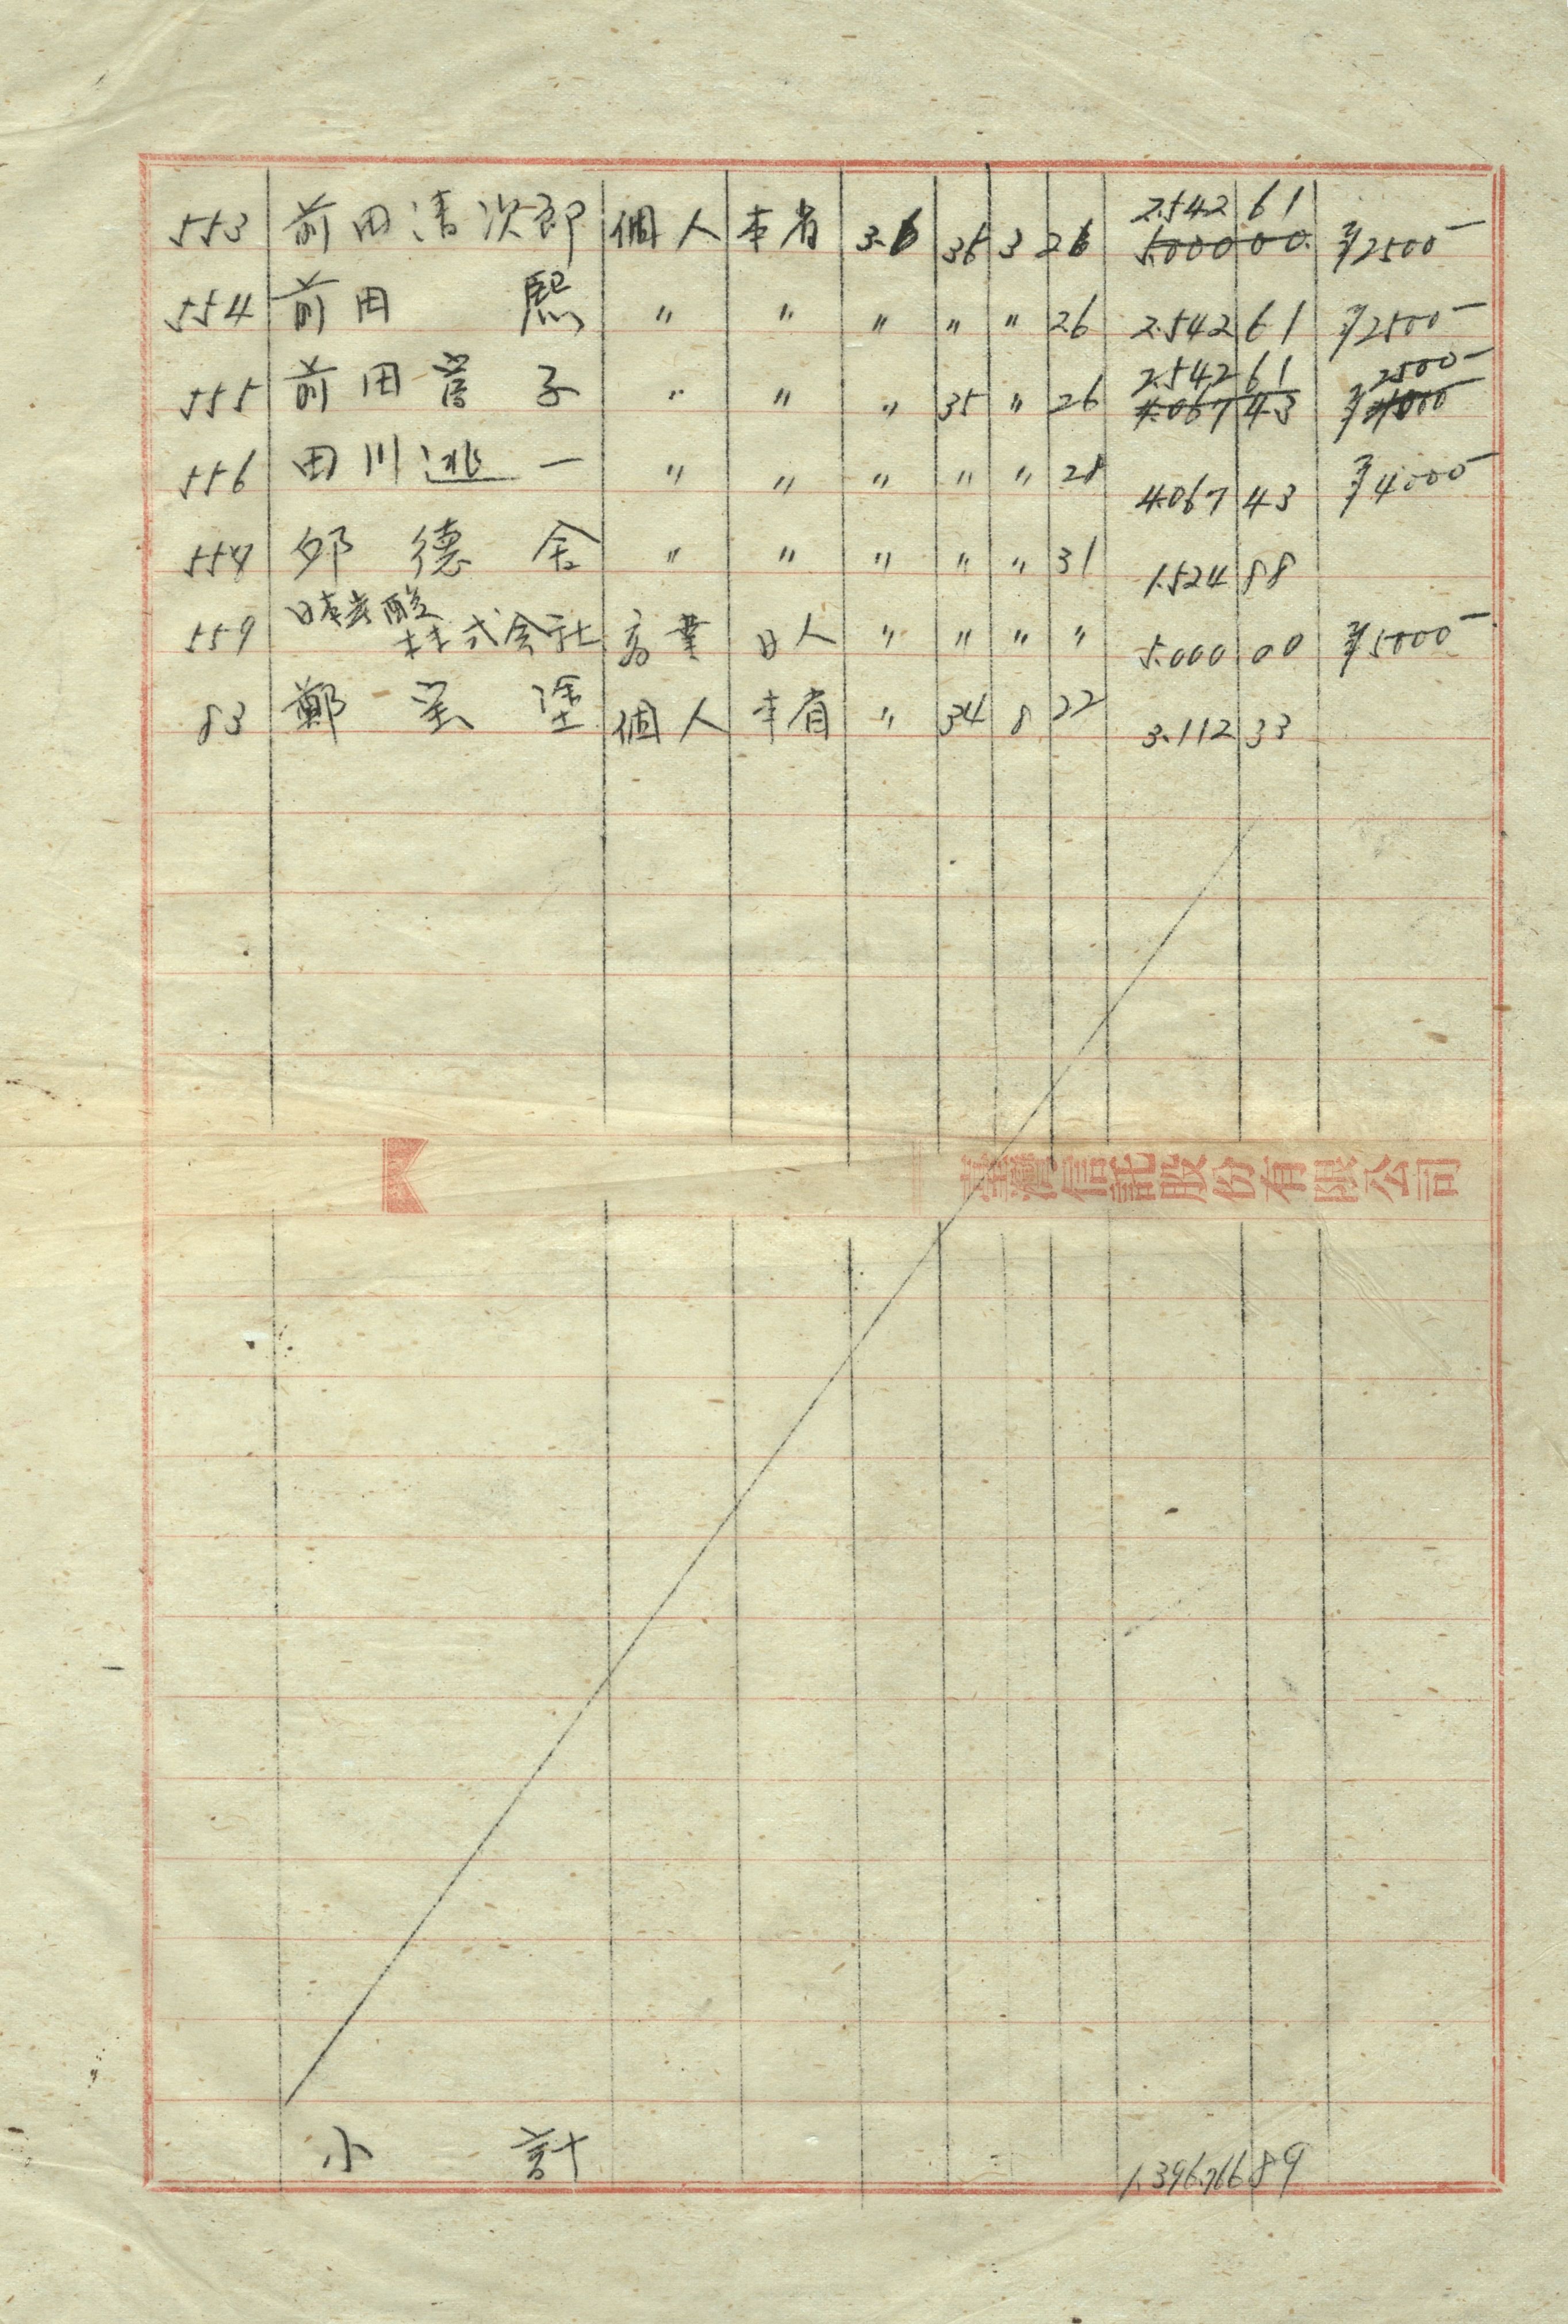 2.542 61
553 前田清次郎 個人 本省 3.6 36 3 26 5.000 00 ¥2500-
554 前田 熈 〃 〃 〃 〃 〃 26 2.542 61 ¥2500-
2.542 61 2500-
555 前田菅子 〃 〃 〃 35 〃 26 4.067 43 ¥4000
556 田川逃一 〃 〃 〃 〃 〃 28 4.067 43 ¥4000-
557 邜德金 〃 〃 〃 〃 〃 31 1.524 88
日本炭酸
559 株式会社 商業 日人 〃 〃 〃 〃 5.000 00 ¥5000-
83 鄭 塗 個人 本省 〃 34 8 22 3.112 33
臺灣信託股份有限公司
小計 1.396.766 89